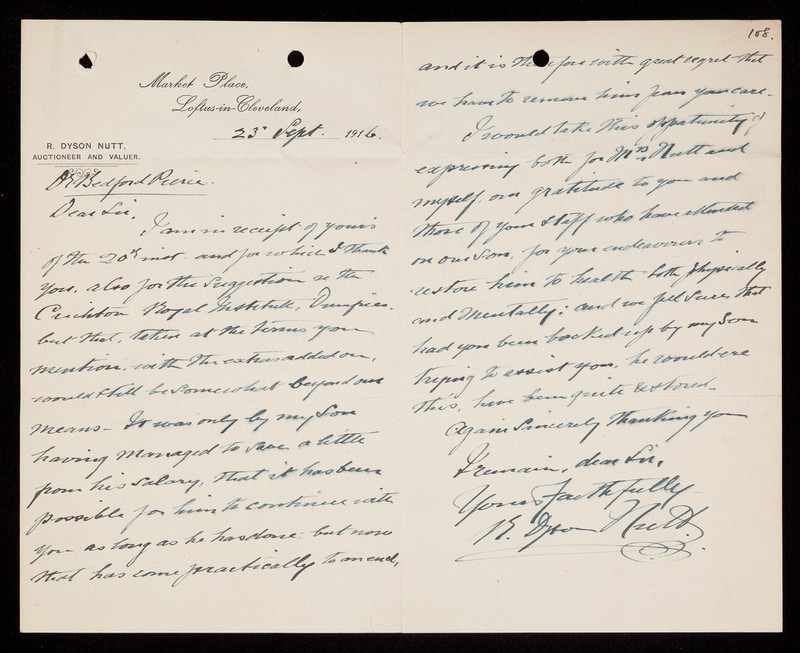 Market Place,
Loftus-in-Cleveland,
23rd Sept. 1916.
R. DYSON NUTT,
AUCTIONEER AND VALUER.
Dr Bedford Pierce.
Dear Sir,
I am in receipt of yours
of the 20th inst. and for which I thank
you, also for the suggestion re the
Crichton Royal Institute, Dumfries.
but that, taken at the terms you
mention, with the extras added on,
would still be somewhat beyond our
means - It was only by my Son
having managed to save a little
from his salary, that it has been
possible for him to continue with
you as long as he has done; but now
that has come practically to an end,
108.
and it is therefore with great regret that
we have to remove him from your care.
I would take this opportunity of
expressing both for Mrs Nutt and
myself, our gratitude to you and
those of your Staff who have attended
on our Son, for your endeavours to
restore him to health both physically
and Mentally; and we feel sure, that
had you been backed up by my Son
trying to assist you, he would ere
this, have been quite restored.
Again Sincerely thanking you
I remain, dear Sir,
Yours faithfully
R. Dyson Nutt.